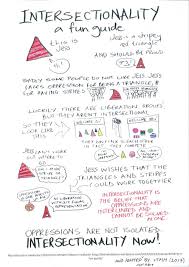 INTERSECTIONALITY
a fun guide
THIS IS
JESS
JESS IS A STRIPEY
RED TRIANGLE
AND SHOULD BE
PROUD
SADLY SOME PEOPLE DO NOT LIKE JESS. JESS
FACES OPPRESSION FOR BEING A TRIANGLE &
FOR HAVING STRIPES
LUCKILY THERE ARE LIBERATION GROUPS
BUT THEY AREN'T INTERSECTIONAL
SO THEY
LOOK LIKE
THIS
JESS CAN'T WORK
OUT WHERE TO
JESS WISHES THAT THE
TRIANGLES AND STRIPES
COULD WORK TOGETHER
INTERSECTIONALITY IS
THE BELIEF THAT
OPPRESSIONS ARE
INTERLINKED AND
CANNOT BE SOLVED
ALONE
OPPRESSIONS ARE NOT ISOLATED.
INTERSECTIONALITY NOW!